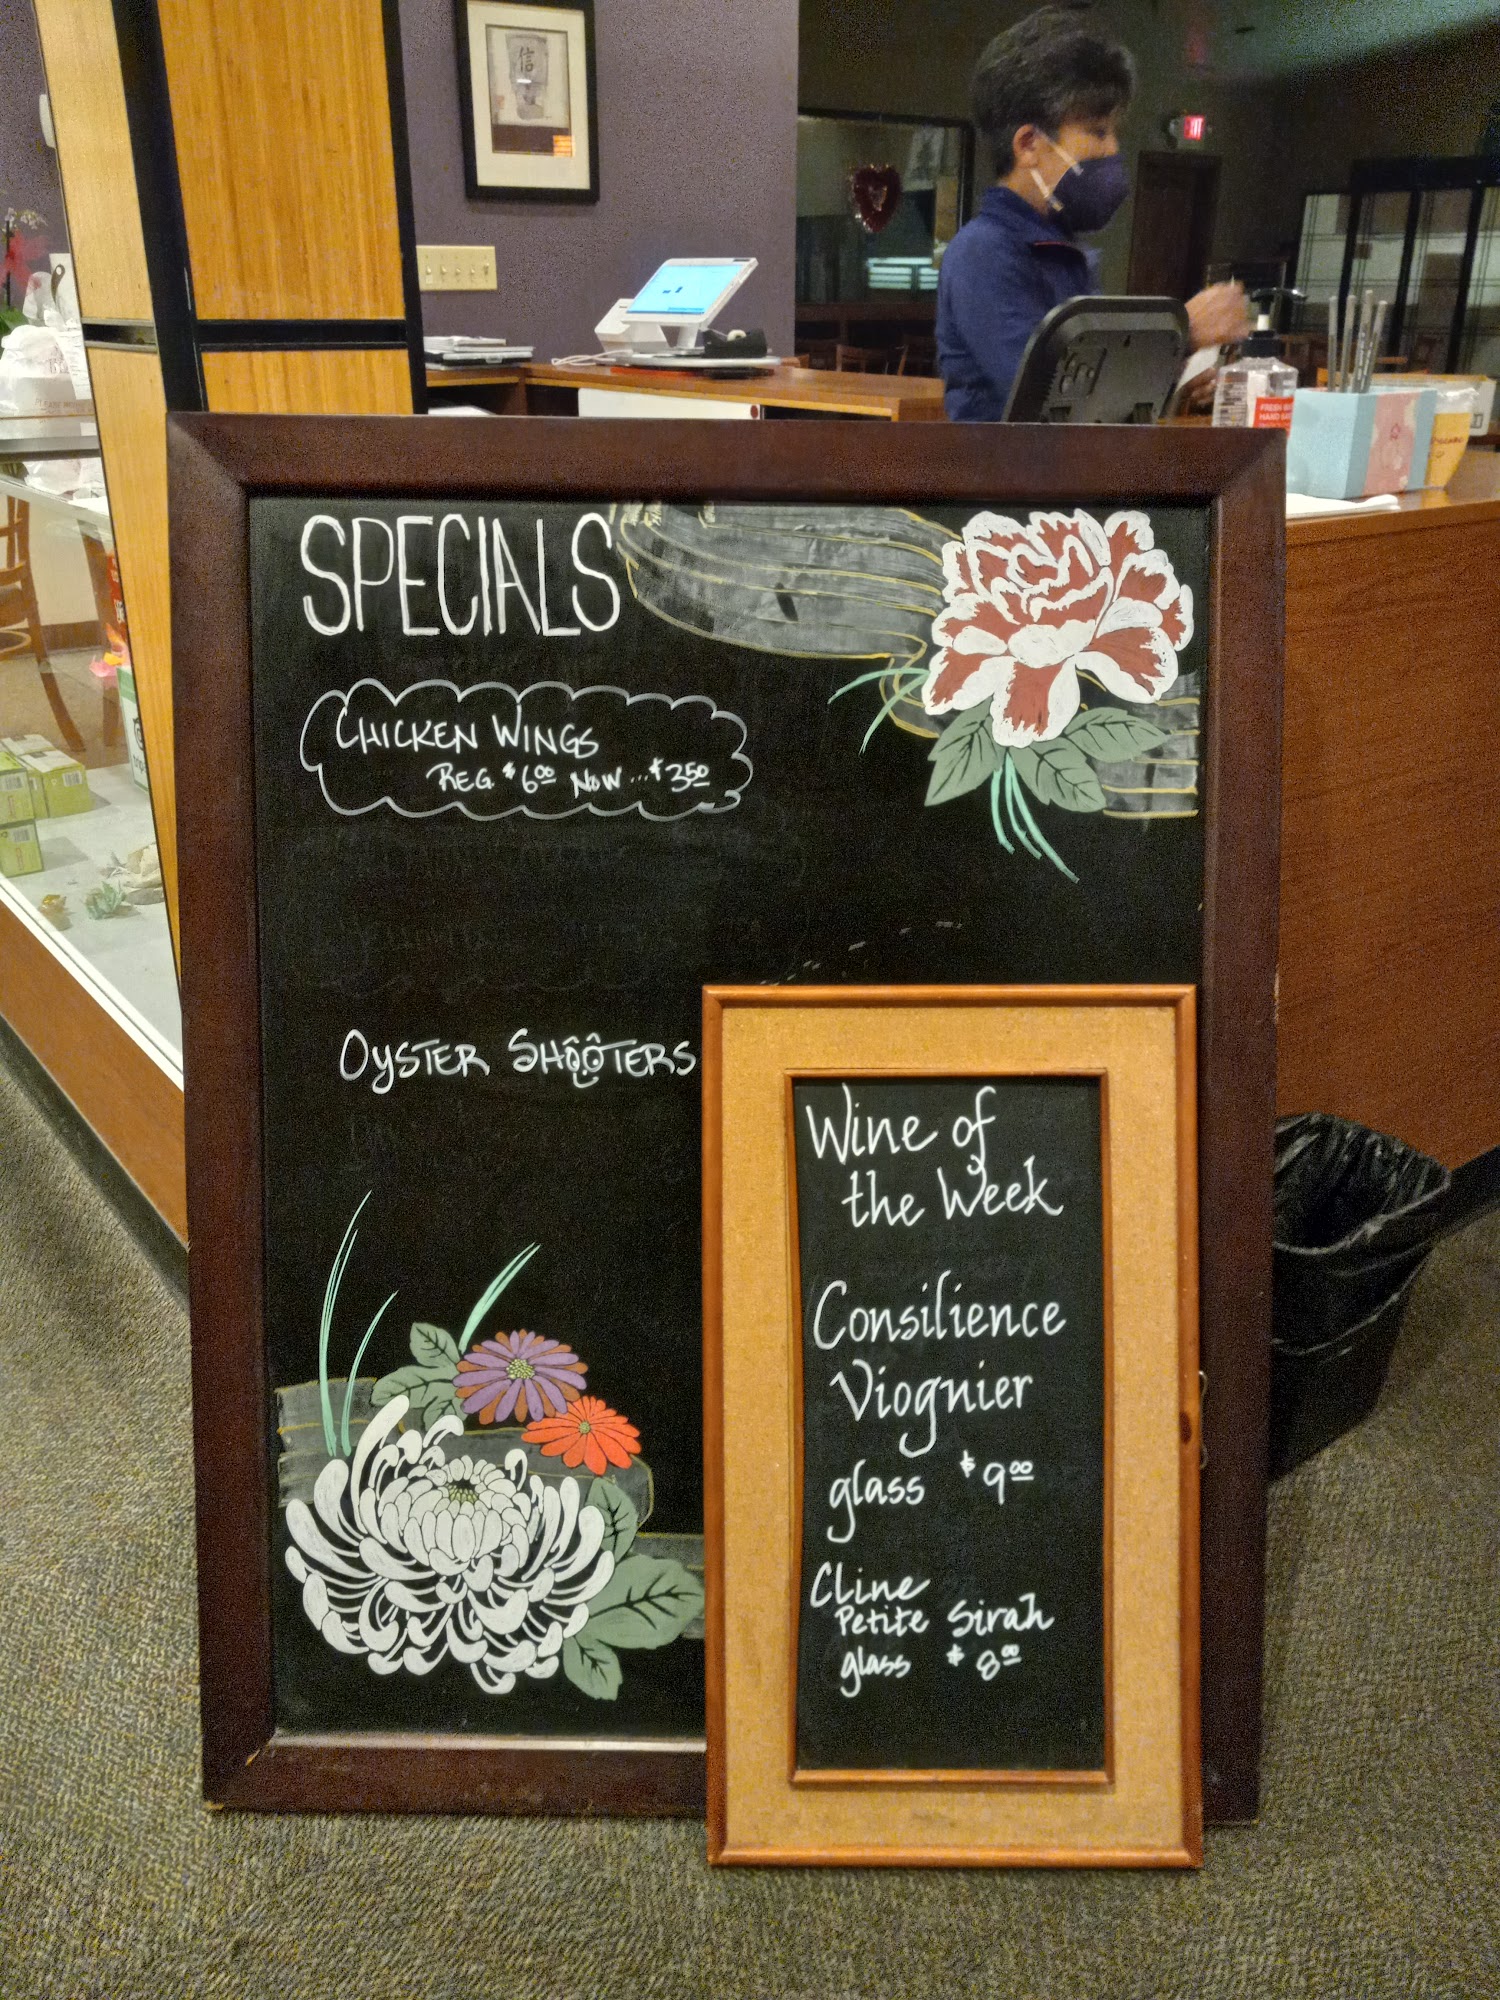 信
EXIT
FRESH
HAND SA
SPECIALS
CHICKEN WINGS
REG. $6.00 NOW...$3.50
OYSTER SHOOTERS
Wine of
the Week
Consilience
Viognier
glass $9.00
Cline
Petite Sirah
glass $8.00